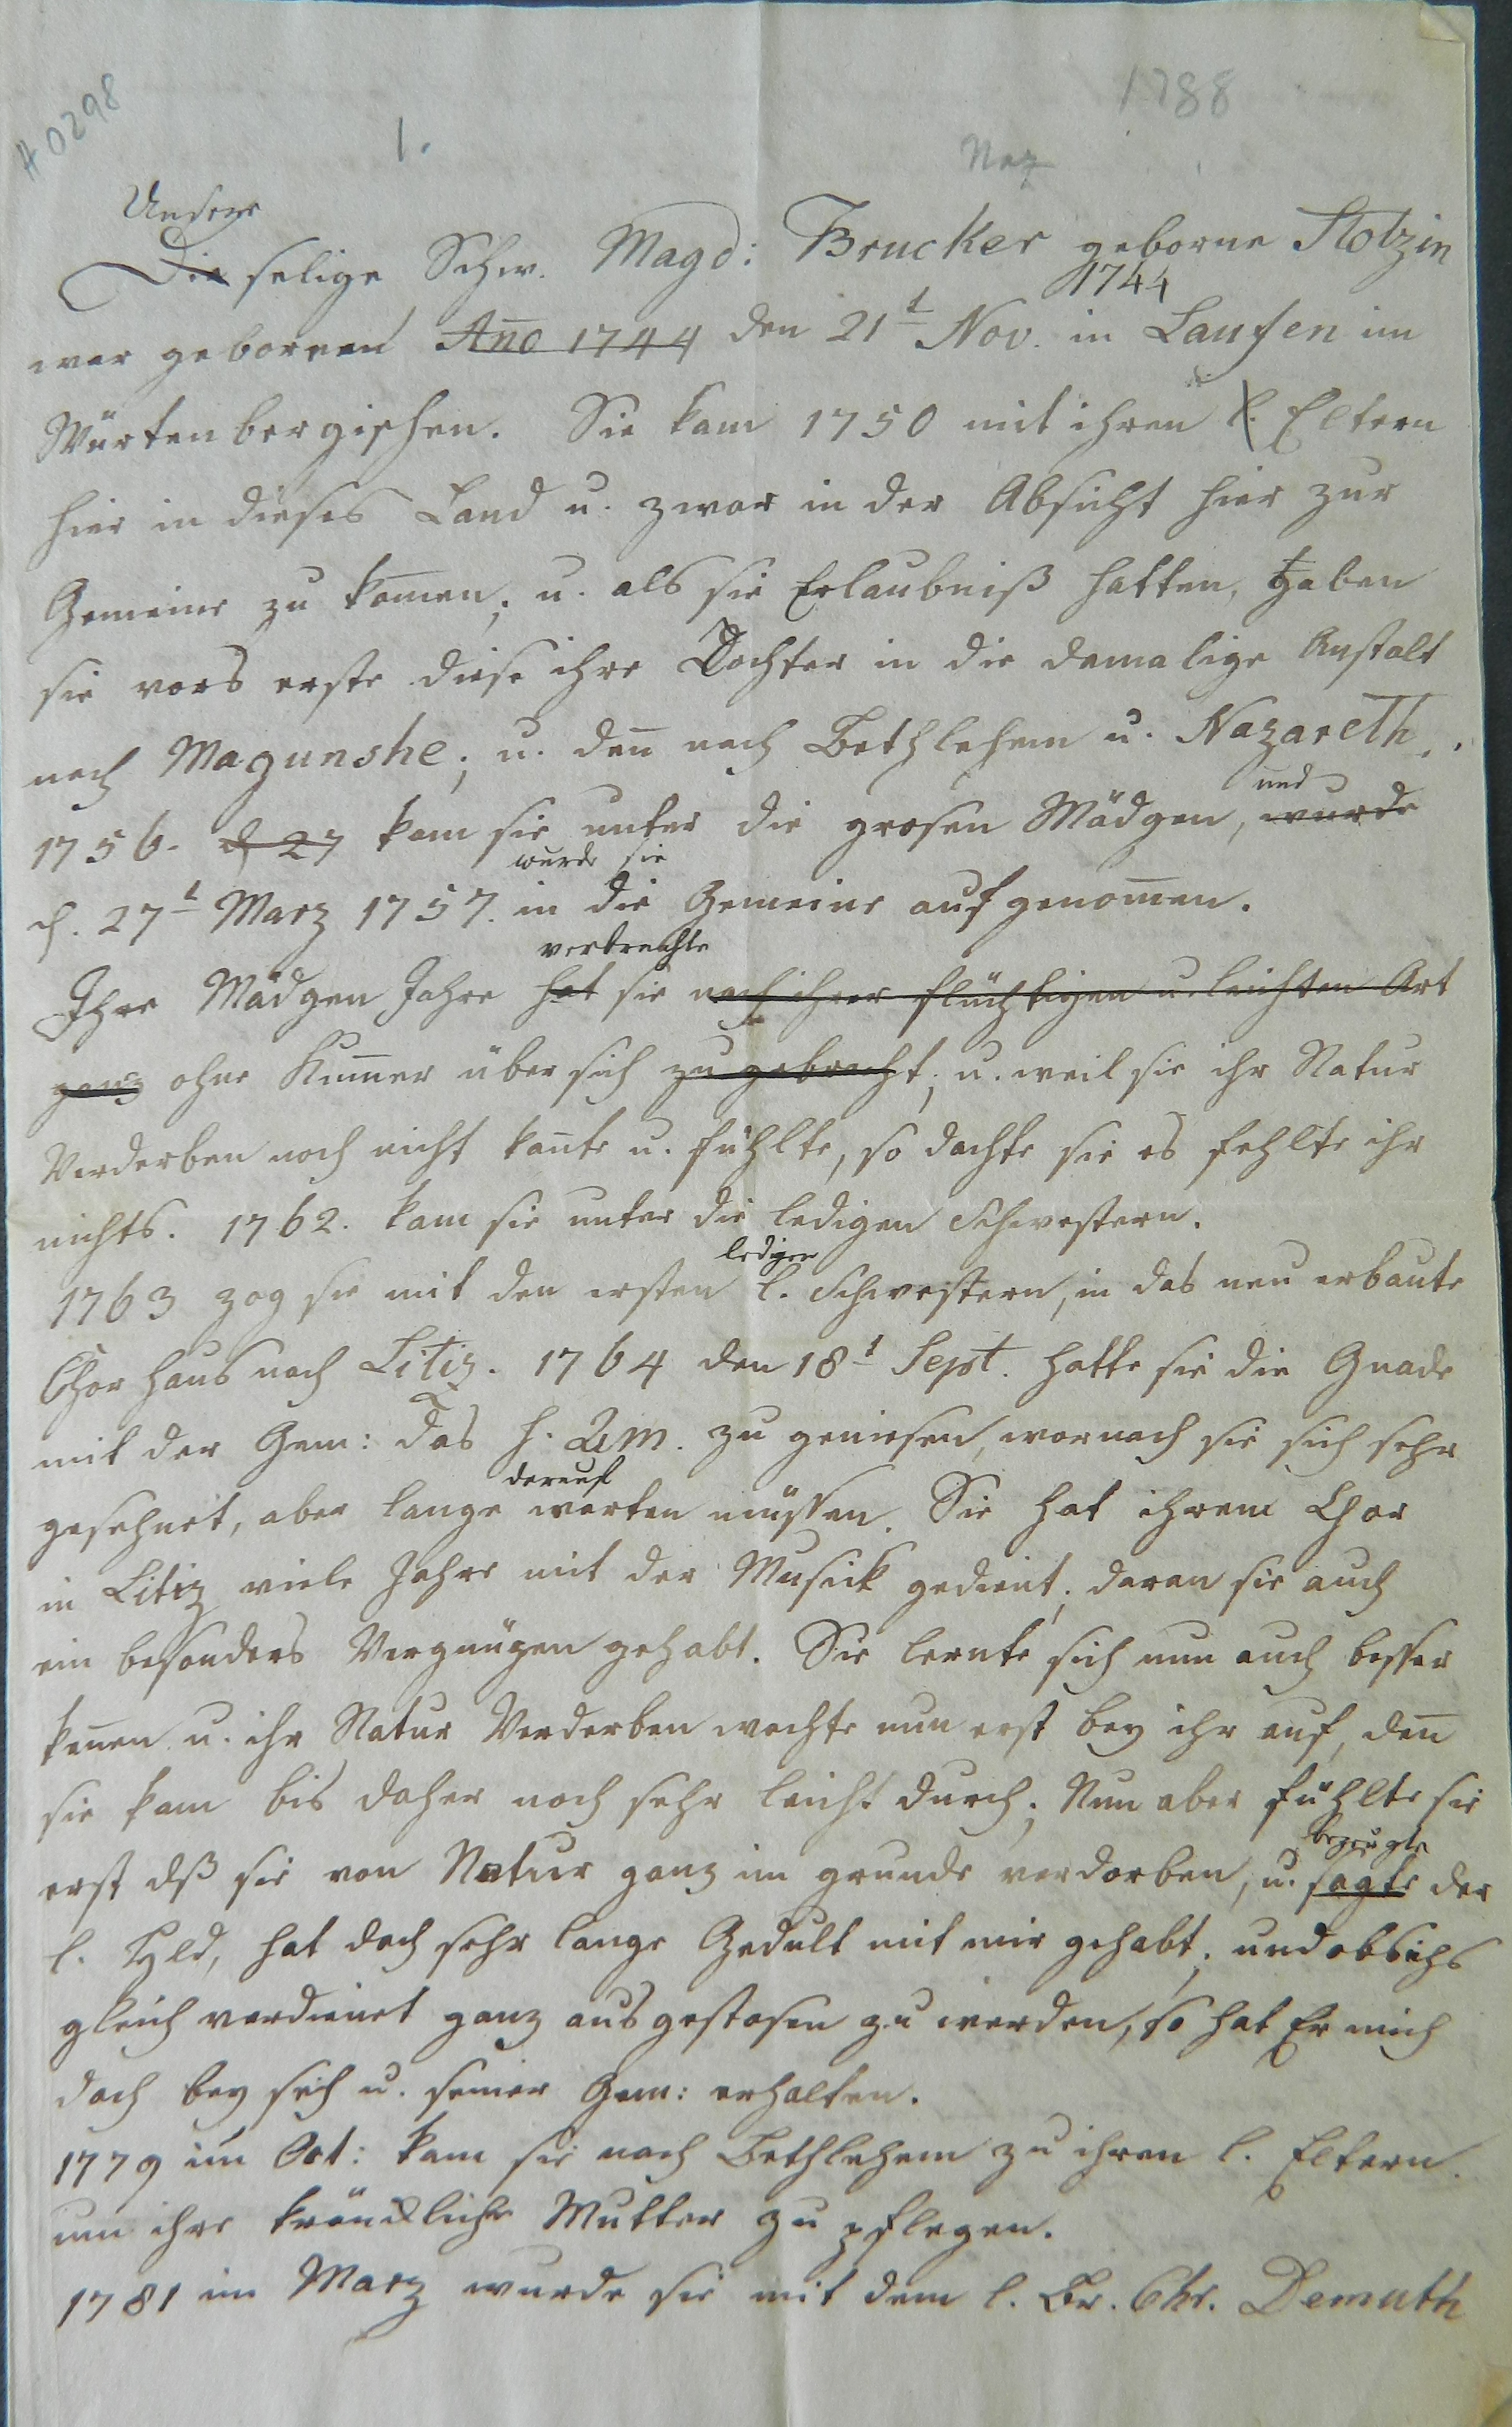 # 0298
1788
1.
Naz
Unsere
Die selige Schw. Magd: Brucker geborne Stotzin
1744
war geboren Año 1744 den 21t Nov. in Laufen im
Würtenbergischen. Sie kam 1750 mit ihren l. Eltern
hier in dieses Land u. zwar in der Absicht hier zur
Gemeine zu kom̄en; u. als sie Erlaubniß hatten, gaben
sie vors erste diese ihre Dochter in die damalige Anstalt
nach Magunshe; u. dan̄ nach Bethlehem u. Nazareth.
und
1756. d 27 kam sie unter die grosen Mädgen, wurde
wurde sie
d. 27t Marz 1757. in die Gemeine aufgenom̄en.
verbrachte
Ihre Mädgen Jahre hat sie nach ihrer flüchtigen u. leichten Art
ganz ohne Kum̄er über sich zu gebracht; u. weil sie ihr Natur
Verderben noch nicht kan̄te u. fühlte, so dachte sie es fehlte ihr
nichts. 1762. kam sie unter die ledigen Schwestern.
ledigen
1763 zog sie mit den ersten l. Schwestern, in das neu erbaute
Chor Haus nach Litiz. 1764 den 18t Sept. hatte sie die Gnade
mit der Gem: das h. Abm. zu geniesen, wornach sie sich sehr
darauf
gesehnet, aber lange warten müssen. Sie hat ihrem Chor
in Litiz viele Jahre mit der Musick gedient; daran sie auch
ein besonders Vergnügen gehabt. Sie lernte sich nun auch besser
ken̄en u. ihr Natur Verderben wachte nun erst bey ihr auf, den̄
sie kam bis daher noch sehr leicht durch; Nun aber fühlte sie
bezeugte
erst dß sie von Natur ganz im grunde verdorben, u. sagte der
l. Hld, hat doch sehr lange Gedult mit mir gehabt; und obs ichs
gleich verdienet ganz ausgestosen zu werden, so hat Er mich
doch bey sich u. seiner Gem: erhalten.
1779 im Oct: kam sie nach Bethlehem zu ihren l. Eltern.
um ihre kräncklich Mutter zu pflegen.
1781 im Marz wurde sie mit dem l. Br. Chr. Demuth